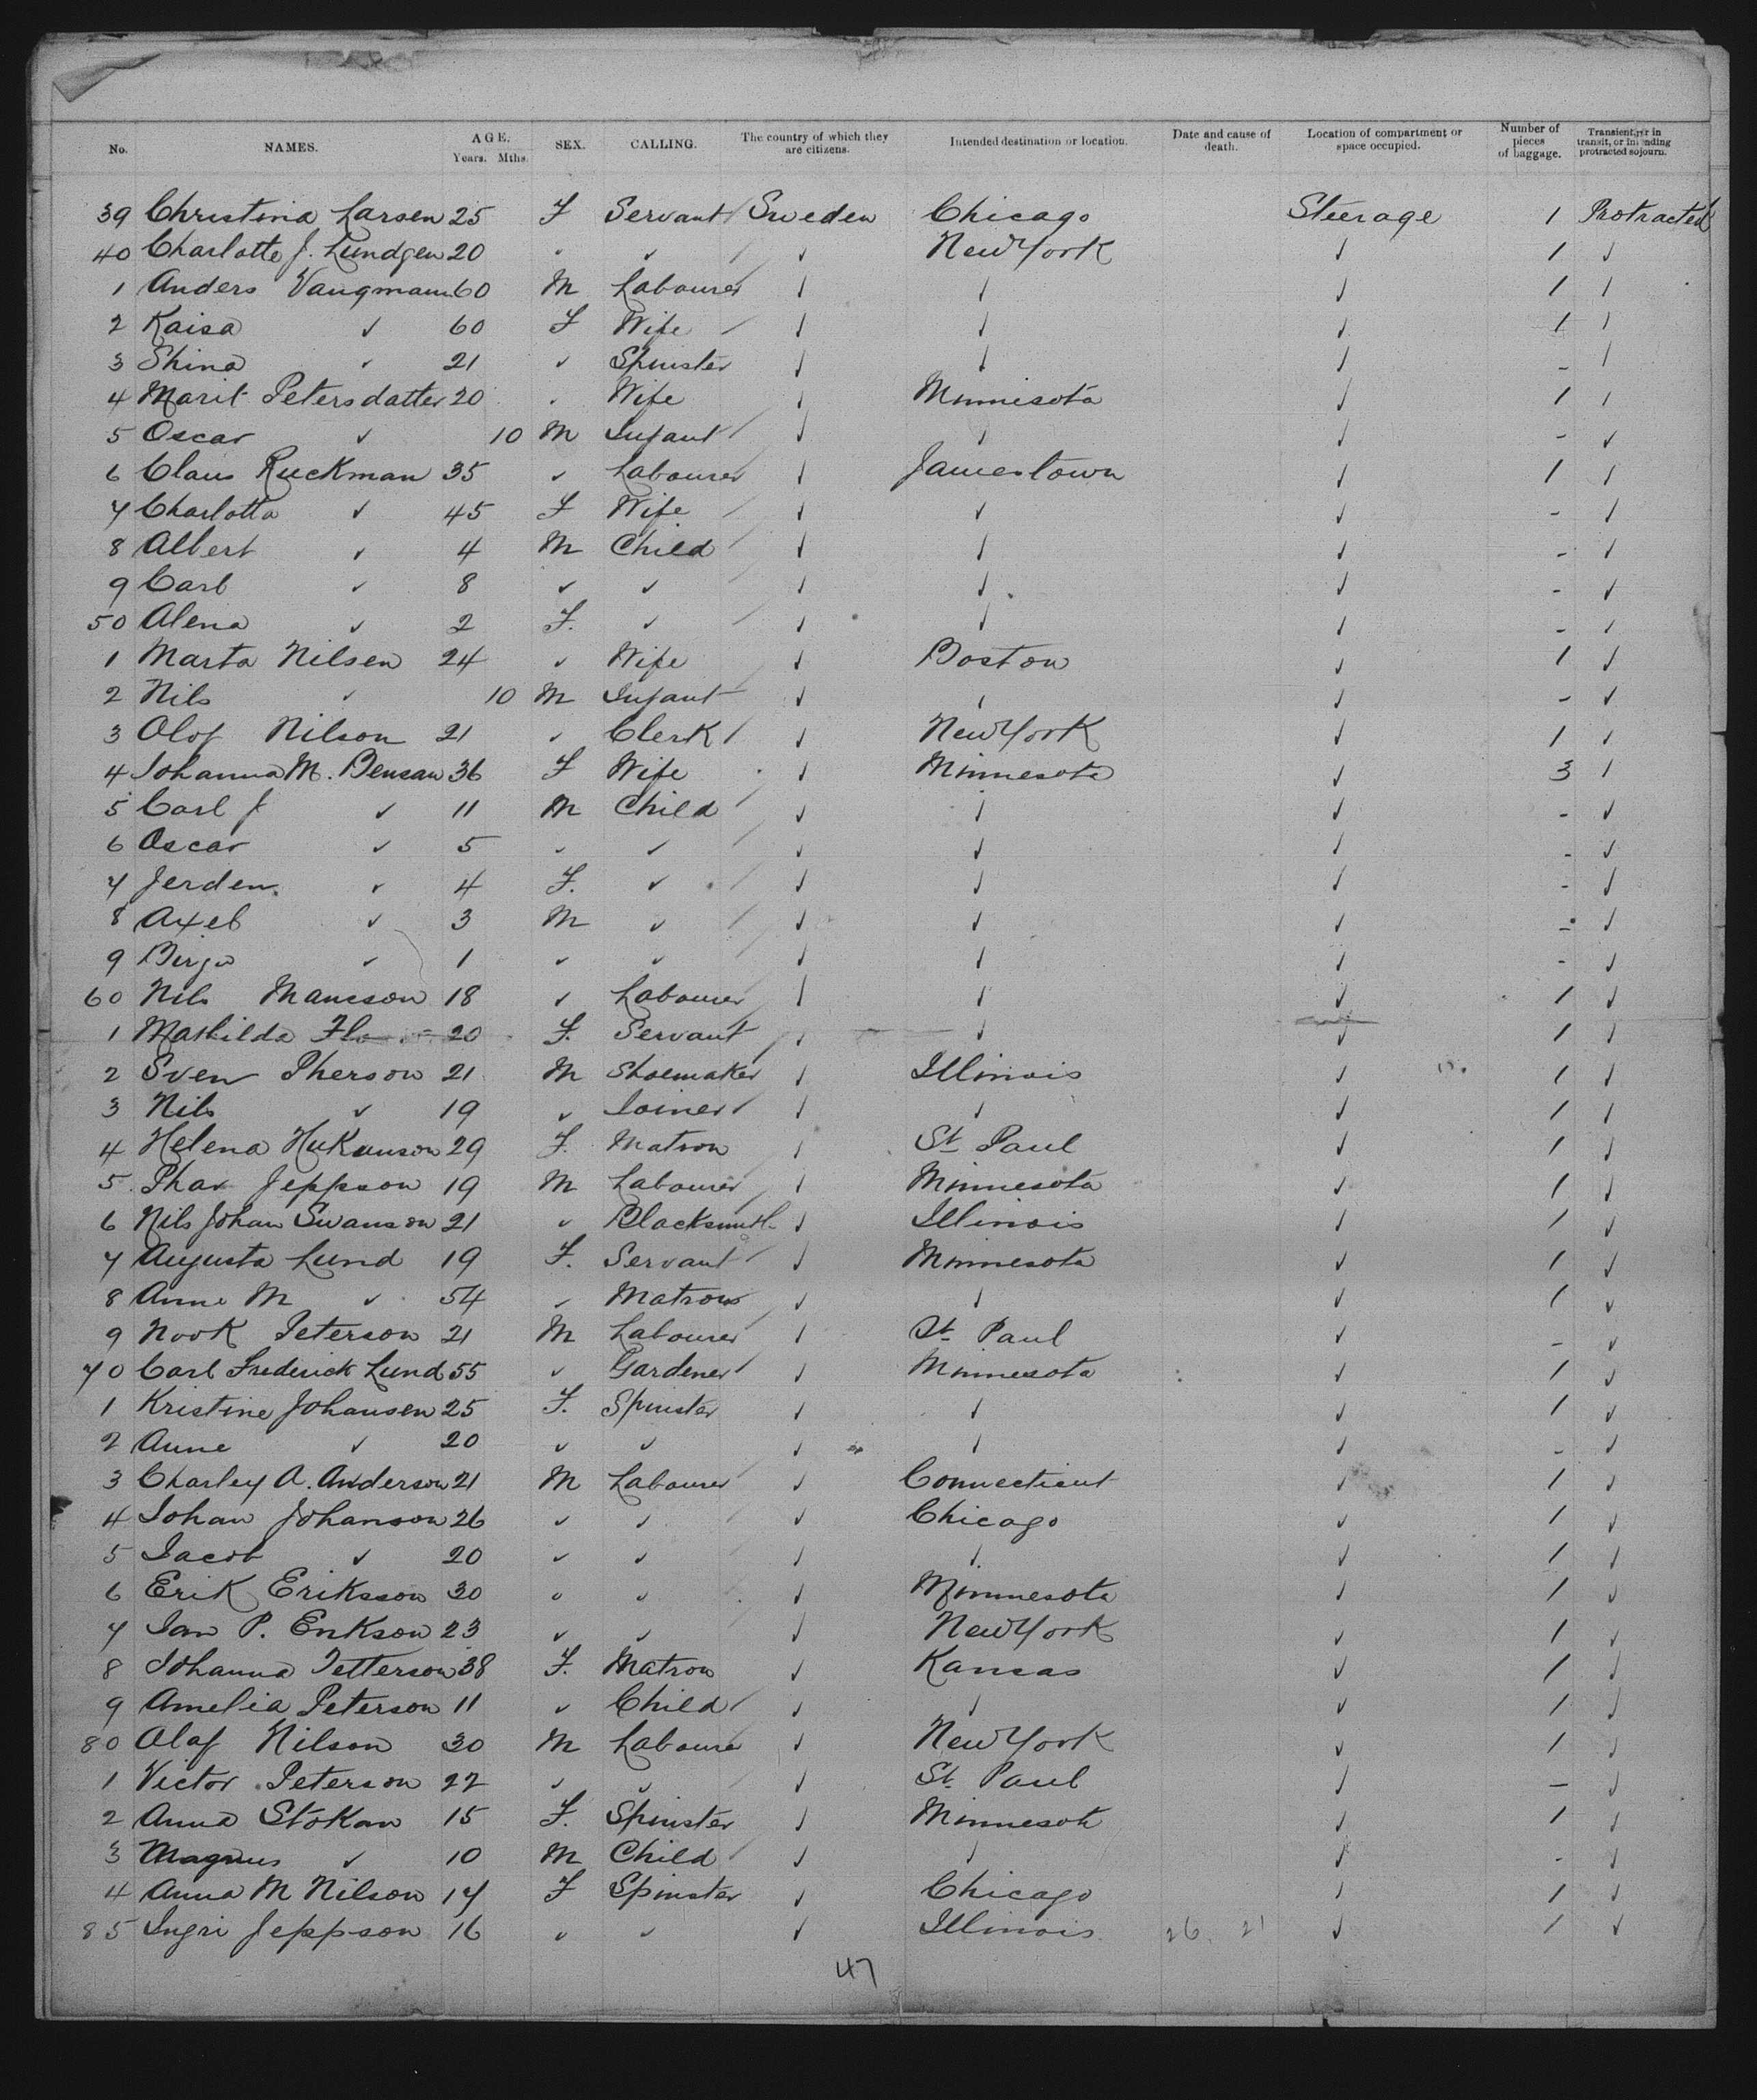 No. NAMES. AGE. Years. Mths. SEX. CALLING. The country of which they are citizens. Intended destination or location. Date and cause of death. Location of compartment or space occupied. Number of pieces of baggage. Transient, or in transit, or intending protracted sojourn.
39 Christina Larsen 25 F Servant Sweden Chicago Steerage 1 Protracted
40 Charlotte J. Lundgen 20 " ✓ ✓ New York ✓ 1 ✓
1 Anders Vaugmann 60 M Labourer ✓ ✓ ✓ 1 ✓
2 Kaisa ✓ 60 F Wife ✓ ✓ ✓ 1 ✓
3 Shina ✓ 21 ✓ Spinster ✓ ✓ ✓ - ✓
4 Marit Petersdatter 20 " Wife ✓ Minnisota ✓ 1 ✓
5 Oscar ✓ 10 M Infant ✓ ✓ ✓ - ✓
6 Claus Ruckman 35 ✓ Labourer ✓ Jamestown ✓ 1 ✓
7 Charlotta ✓ 45 F Wife ✓ ✓ ✓ - ✓
8 Albert ✓ 4 M Child ✓ ✓ ✓ - ✓
9 Carl ✓ 8 ✓ ✓ ✓ ✓ ✓ - ✓
50 Alena ✓ 2 F. ✓ ✓ ✓ ✓ - ✓
1 Marta Nilsen 24 ✓ Wife ✓ Boston ✓ 1 ✓
2 Nils ✓ 10 M Infant ✓ ✓ ✓ - ✓
3 Olof Nilson 21 ✓ Clerk ✓ New York ✓ 1 ✓
4 Johanna M. Bensan 36 F Wife ✓ Minnesota ✓ 3 ✓
5 Carl J ✓ 11 M Child ✓ ✓ ✓ - ✓
6 Oscar ✓ 5 ✓ ✓ ✓ ✓ ✓ - ✓
7 Jerden ✓ 4 F. ✓ ✓ ✓ ✓ - ✓
8 Axel ✓ 3 M ✓ ✓ ✓ ✓ - ✓
9 ✓ 1 ✓ ✓ ✓ ✓ ✓ - ✓
60 Nils Manson 18 ✓ Labourer ✓ ✓ ✓ 1 ✓
1 Mathilda 20 F. Servant ✓ ✓ ✓ 1 ✓
2 Sven Pherson 21 M Shoemaker ✓ Illinois ✓ 1 ✓
3 Nils ✓ 19 ✓ Joiner ✓ ✓ ✓ 1 ✓
4 Helena Hukanson 29 F. Matron ✓ St Paul ✓ 1 ✓
5 Phar Jeppson 19 M Labourer ✓ Minnesota ✓ 1 ✓
6 Nils Johan Swanson 21 ✓ Blacksmith ✓ Illinois ✓ 1 ✓
7 Augusta Lund 19 F. Servant ✓ Minnesota ✓ 1 ✓
8 Anne M ✓ 54 ✓ Matron ✓ ✓ ✓ 1 ✓
9 Nook Peterson 21 M Labourer ✓ St Paul ✓ - ✓
70 Carl Frederick Lund 55 ✓ Gardener ✓ Minnesota ✓ 1 ✓
1 Kristine Johansen 25 F. Spinster ✓ ✓ ✓ 1 ✓
2 Anne ✓ 20 ✓ ✓ ✓ ✓ ✓ - ✓
3 Charley A. Anderson 21 M Labourer ✓ Connecticut ✓ 1 ✓
4 Johan Johanson 26 ✓ ✓ ✓ Chicago ✓ 1 ✓
5 Jacob ✓ 20 ✓ ✓ ✓ ✓ ✓ 1 ✓
6 Erik Eriksson 30 ✓ ✓ ✓ Minnesota ✓ 1 ✓
7 Jan P. Erikson 23 ✓ ✓ ✓ New York ✓ 1 ✓
8 Johanna Petterson 38 F. Matron ✓ Kansas ✓ 1 ✓
9 Amelia Peterson 11 ✓ Child ✓ ✓ ✓ 1 ✓
80 Olaf Nilson 30 M Labourer ✓ New York ✓ 1 ✓
1 Victor Peterson 22 ✓ ✓ ✓ St. Paul ✓ - ✓
2 Anna Stokan 15 F. Spinster ✓ Minnesota ✓ 1 ✓
3 Magnus ✓ 10 M Child ✓ ✓ ✓ - ✓
4 Anna M Nilson 17 F Spinster ✓ Chicago ✓ 1 ✓
85 Ingri Jeppson 16 ✓ ✓ ✓ Illinois 26. 21 ✓ 1 ✓
47